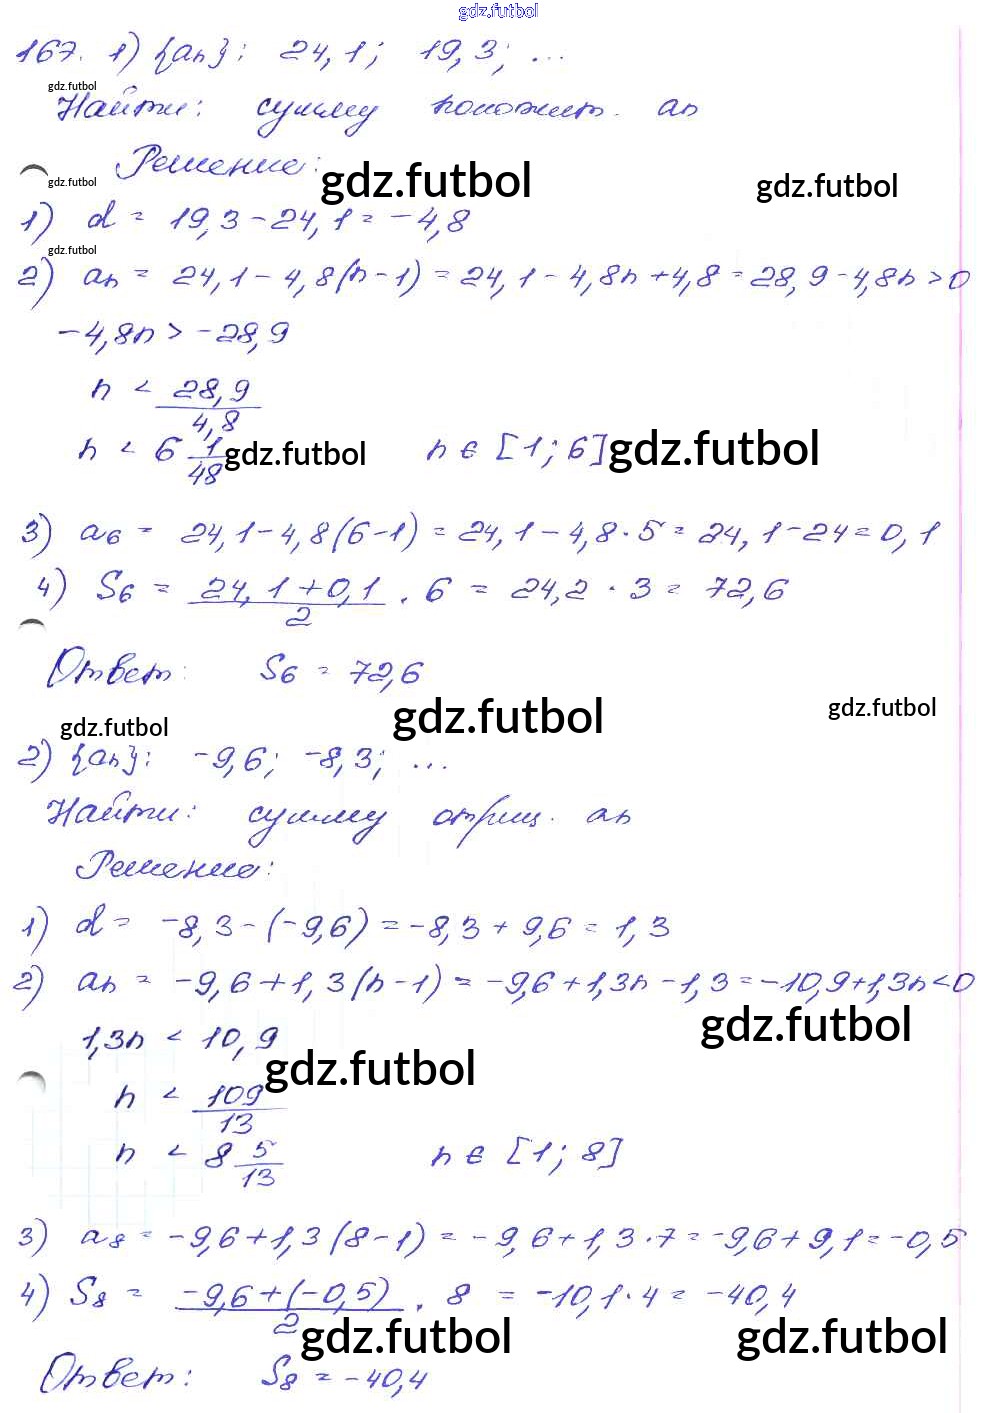 gdz.futbol
167. 1) {an}: 24,1; 19,3; ...
gdz.futbol
Найти: сумму положит. an
Решение:
gdz.futbol gdz.futbol gdz.futbol
1) d = 19,3 - 24,1 = -4,8
gdz.futbol
2) an = 24,1 - 4,8(n-1) = 24,1 - 4,8n + 4,8 = 28,9 - 4,8n > 0
-4,8n > -28,9
n < 28,9/4,8
n < 6 1/48 gdz.futbol n ∈ [1; 6] gdz.futbol
3) a6 = 24,1 - 4,8(6-1) = 24,1 - 4,8 · 5 = 24,1 - 24 = 0,1
4) S6 = (24,1 + 0,1)/2 · 6 = 24,2 · 3 = 72,6
Ответ: S6 = 72,6
gdz.futbol gdz.futbol gdz.futbol
2) {an}: -9,6; -8,3; ...
Найти: сумму отриц. an
Решение:
1) d = -8,3 - (-9,6) = -8,3 + 9,6 = 1,3
2) an = -9,6 + 1,3(n-1) = -9,6 + 1,3n - 1,3 = -10,9 + 1,3n < 0
gdz.futbol
1,3n < 10,9
gdz.futbol
n < 109/13
n < 8 5/13 n ∈ [1; 8]
3) a8 = -9,6 + 1,3(8-1) = -9,6 + 1,3 · 7 = -9,6 + 9,1 = -0,5
4) S8 = (-9,6 + (-0,5))/2 · 8 = -10,1 · 4 = -40,4
gdz.futbol gdz.futbol
Ответ: S8 = -40,4